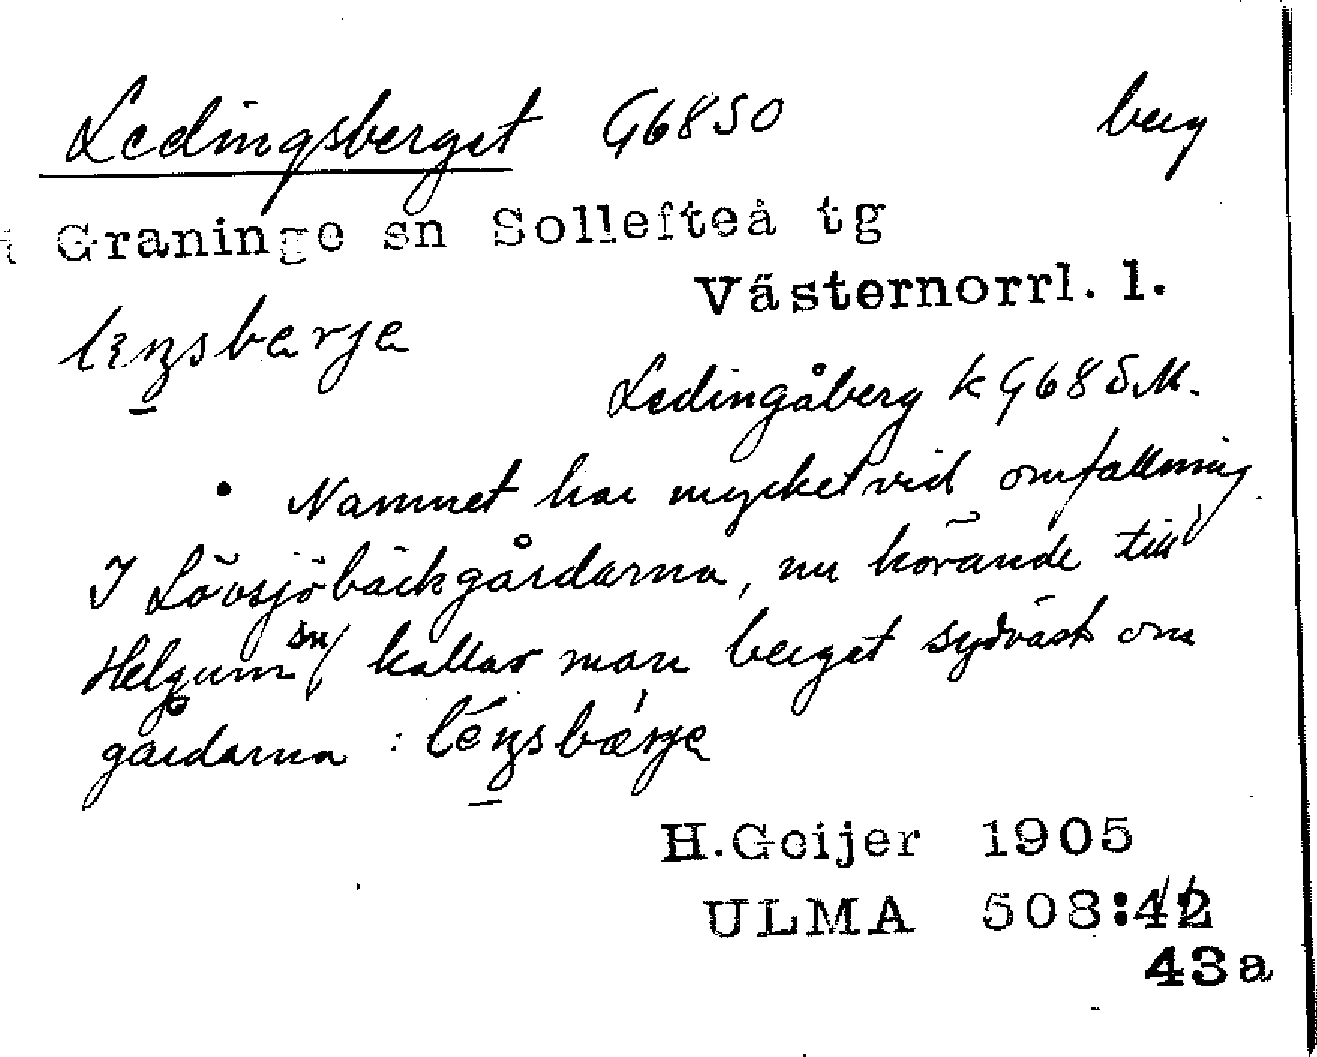 Ledingsberget G6850 berg
Graninge sn Sollefteå tg
Västernorrl. l.
Ledingåberg k G68 SM.
Namnet har mycket vid omfattning.
I Lövsjöbäckgårdarna, nu hörande till
Helgum sn/ kallar man berget sydväst om
gårdarna :
H.Geijer 1905
ULMA 508:42
43a